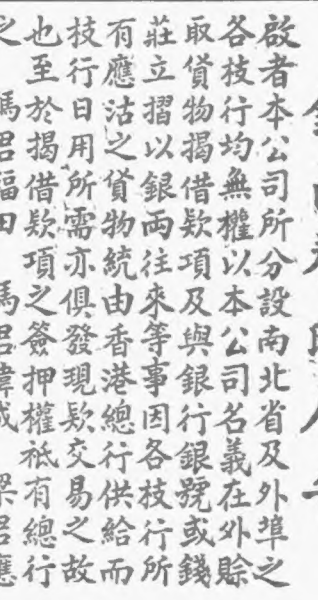 啟者本公司所分設南北省及外埠之
各枝行均無權以本公司名義在外賒
取貨物揭借欵項及與銀行銀號或錢
莊立摺以銀両往來等事因各枝行所
有應沽之貨物統由香港總行供給而
枝行日用所需亦俱發現欵交易之故
也至於揭借欵項之簽押權祗有總行
之